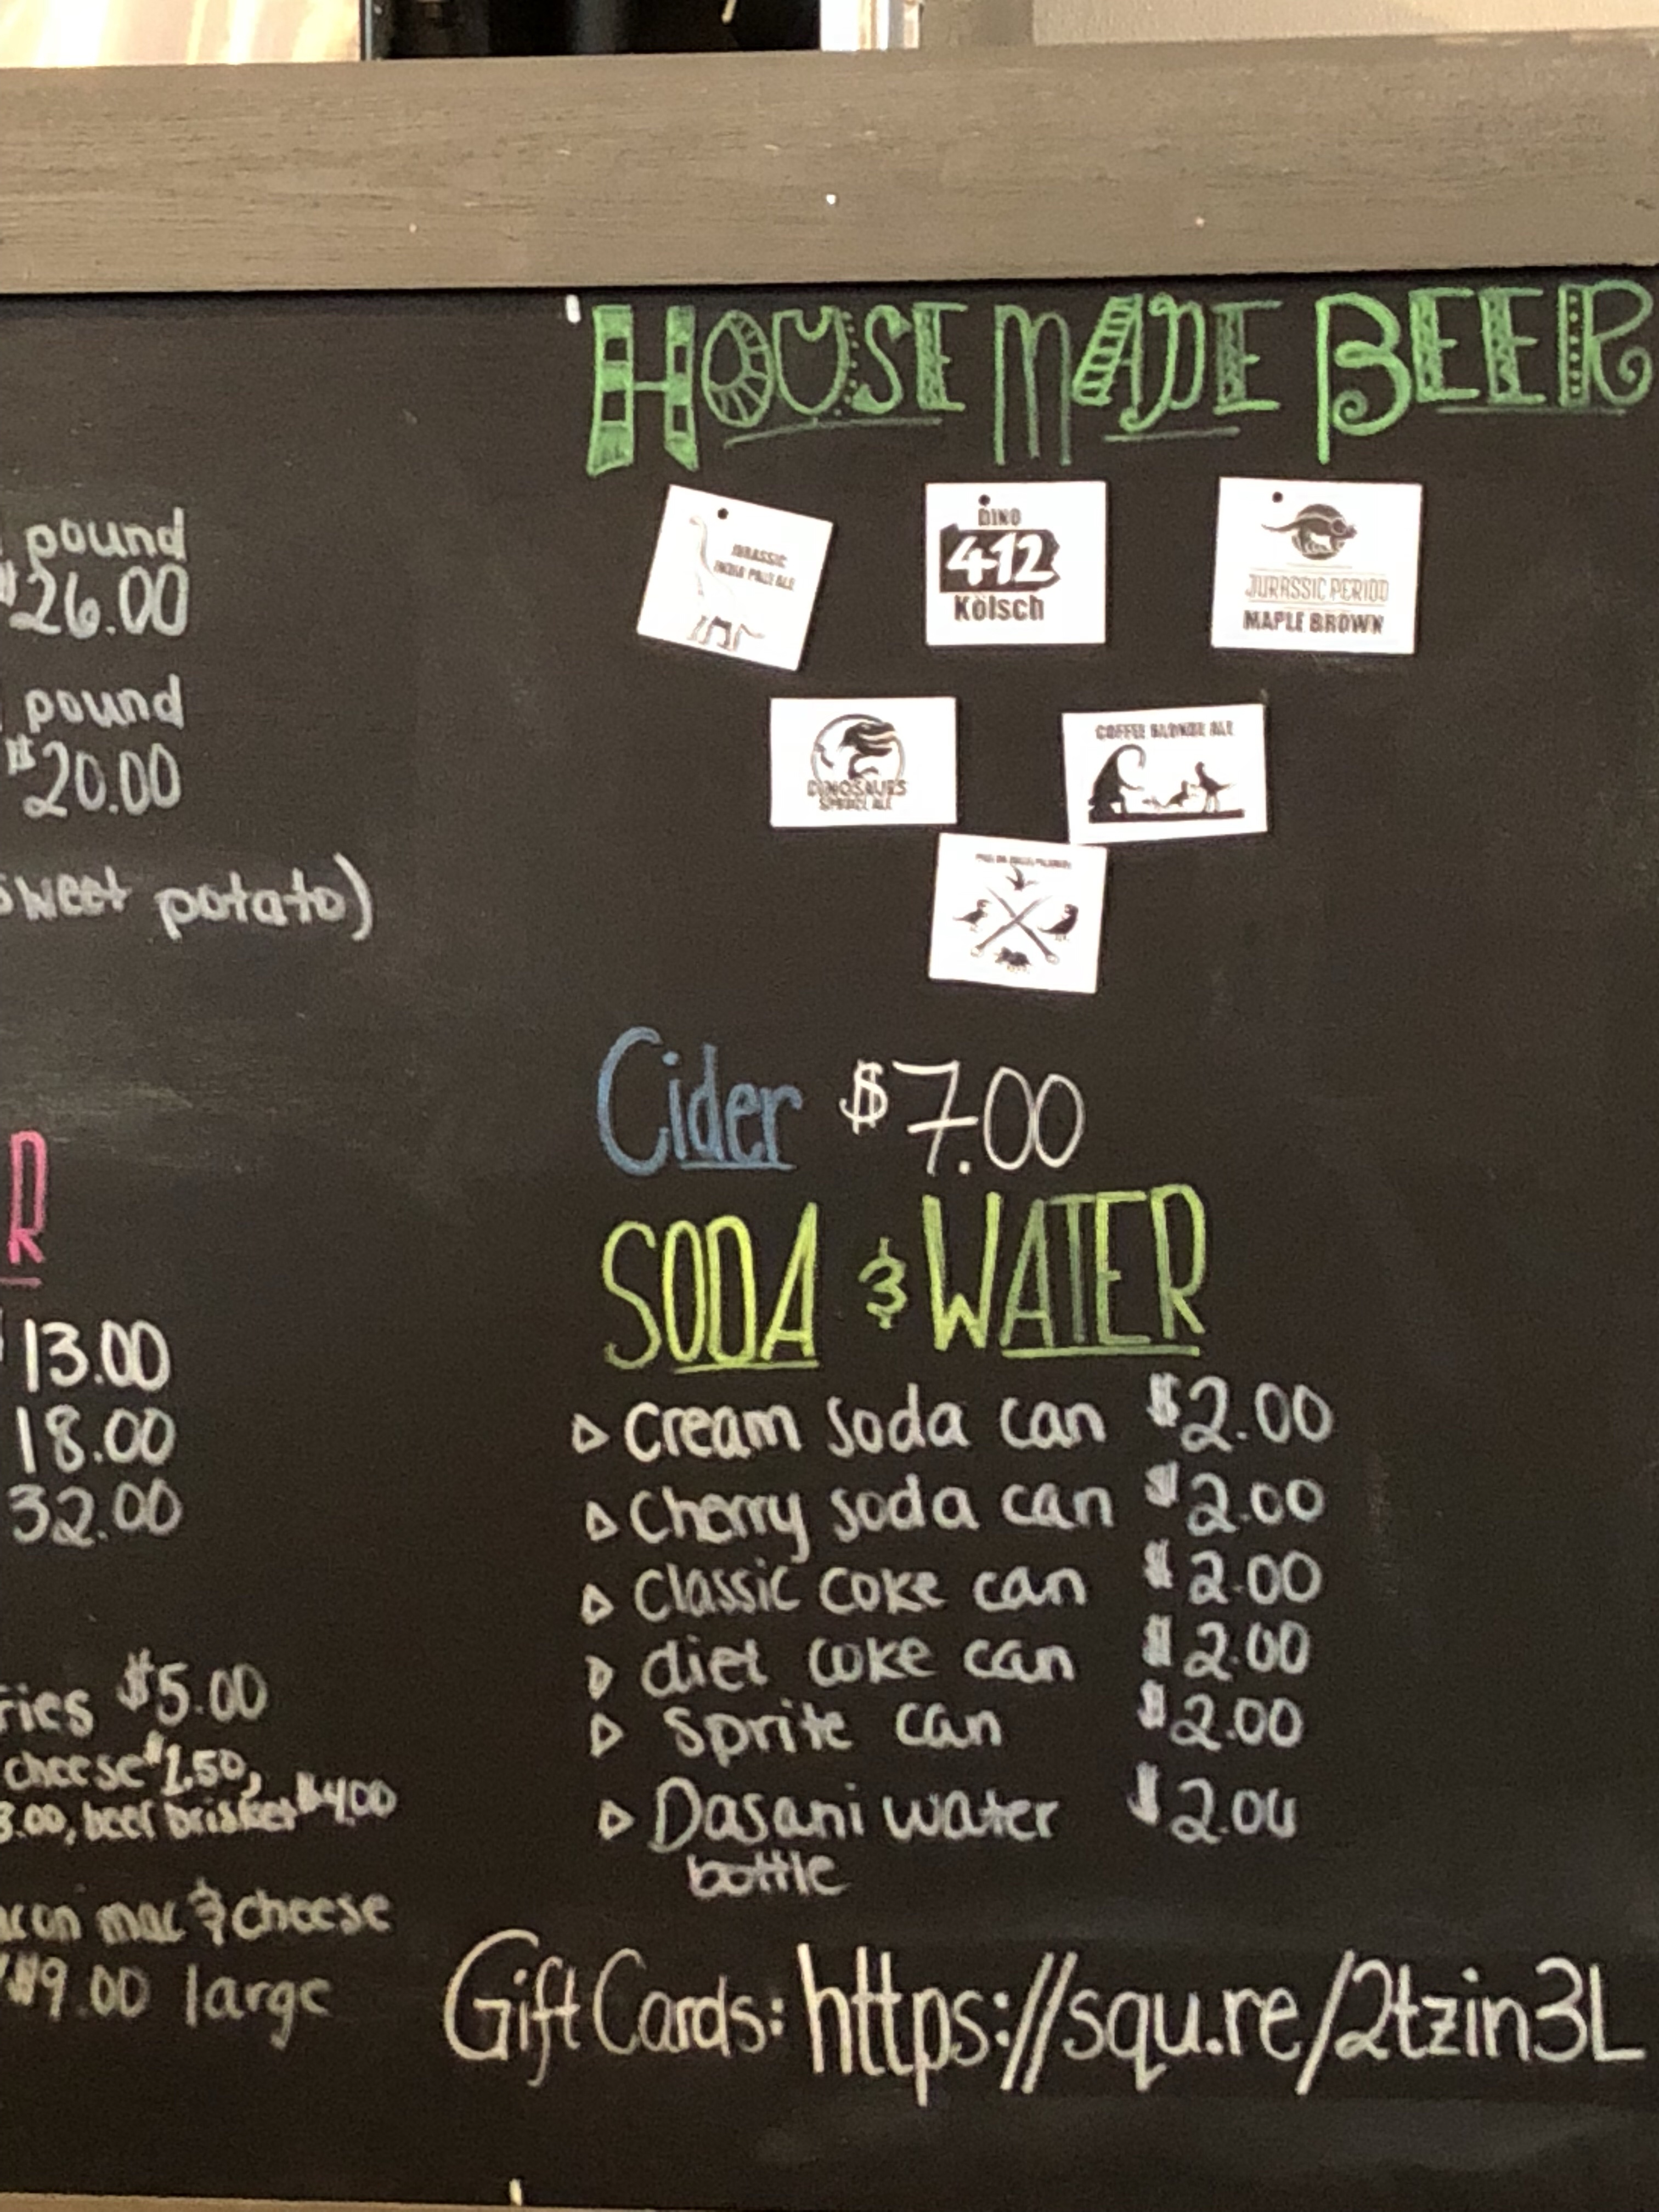 pound
$26.00
pound
$20.00
sweet potato)
R
13.00
18.00
32.00
ries $5.00
cheese $1.50,
3.00, beef brisket $4.00
acon mac & cheese
/$9.00 large
HOUSE MADE BEER
JURASSIC
INDIA PALE ALE
DINO
412
Kölsch
JURASSIC PERIOD
MAPLE BROWN
DINOSAURS
SPRUCE ALE
COFFEE BLONDE ALE
Cider $7.00
SODA & WATER
Cream soda can $2.00
Cherry soda can $2.00
Classic coke can $2.00
diet coke can $2.00
Sprite can $2.00
Dasani water $2.00
bottle
Gift Cards: https://squ.re/2tzin3L